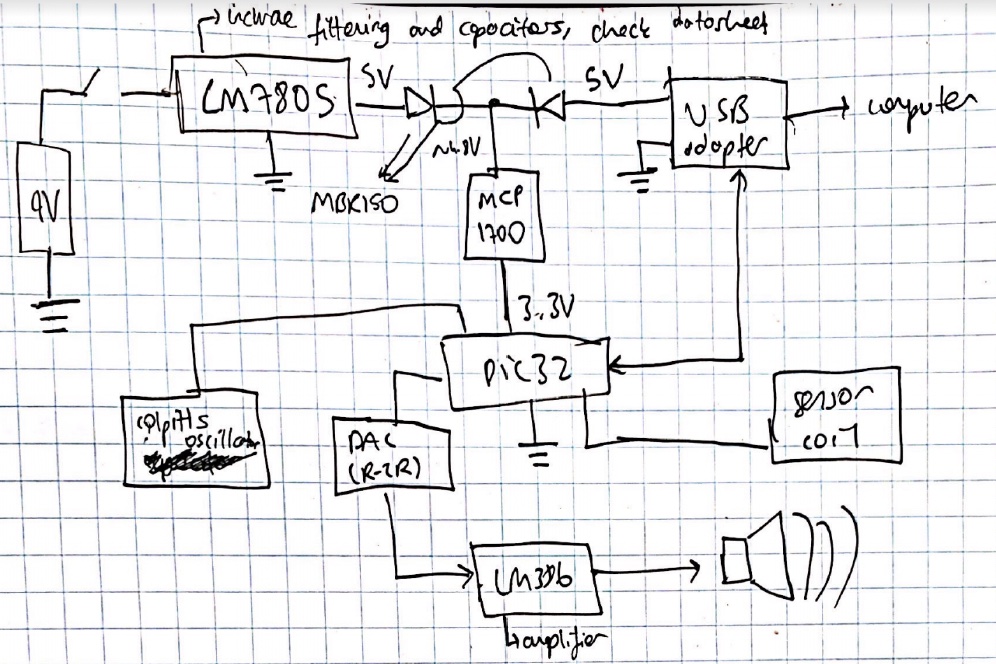 include filtering and capacitors, check datasheet
LM7805
5V
5V
USB
adapter
computer
9V
~4.8V
MBR150
MCP
1700
3.3V
PIC32
colpitts
oscillator
DAC
(R-2R)
sensor
coil
LM386
amplifier